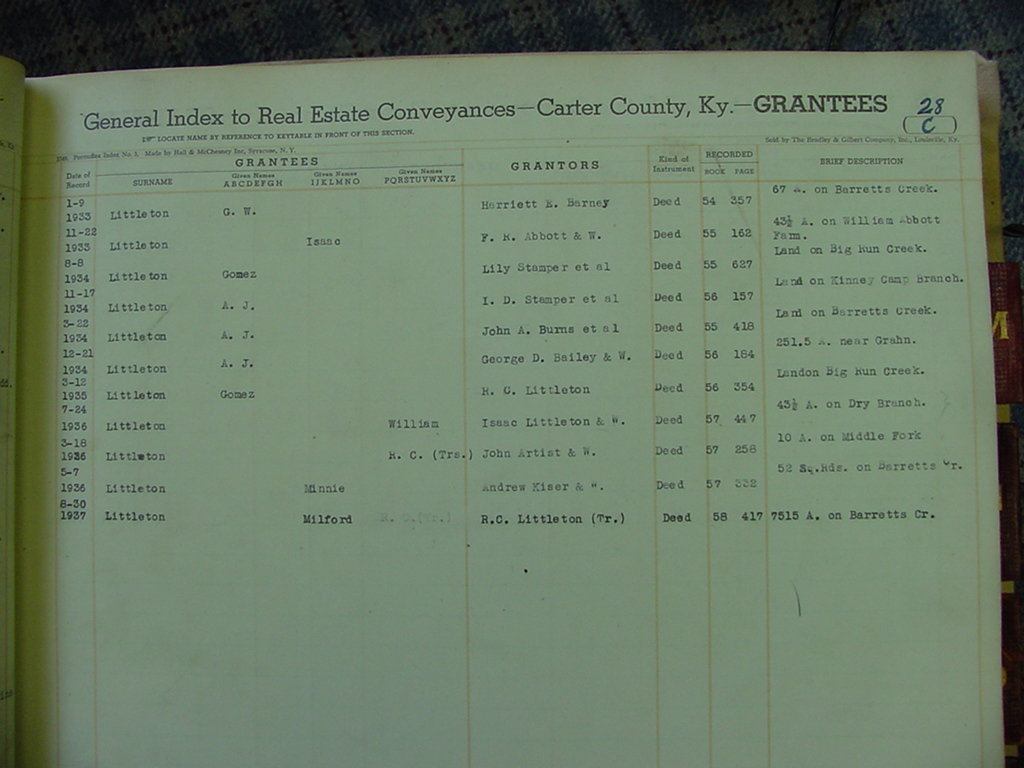 General Index to Real Estate Conveyances—Carter County, Ky.—GRANTEES 28
LOCATE NAME BY REFERENCE TO KEYTABLE IN FRONT OF THIS SECTION. ( C )
Permudex Index No. 3. Made by Hall & McChesney Inc, Syracuse, N. Y. Sold by The Bradley & Gilbert Company, Inc., Louisville, Ky.
GRANTEES GRANTORS Kind of Instrument RECORDED BRIEF DESCRIPTION
Date of Record SURNAME Given Names ABCDEFGH Given Names IJKLMNO Given Names PQRSTUVWXYZ BOOK PAGE
1-9 1933 Littleton G. W. Harriett E. Barney Deed 54 357 67 A. on Barretts Creek.
11-22 1933 Littleton Isaac F. R. Abbott & W. Deed 55 162 43½ A. on William Abbott Farm.
8-8 1934 Littleton Gomez Lily Stamper et al Deed 55 627 Land on Big Run Creek.
11-17 1934 Littleton A. J. I. D. Stamper et al Deed 56 157 Land on Kinney Camp Branch.
3-22 1934 Littleton A. J. John A. Burns et al Deed 55 418 Land on Barretts Creek.
12-21 1934 Littleton A. J. George D. Bailey & W. Deed 56 184 251.5 A. near Grahn.
3-12 1935 Littleton Gomez R. C. Littleton Deed 56 354 Landon Big Run Creek.
7-24 1936 Littleton William Isaac Littleton & W. Deed 57 447 43½ A. on Dry Branch.
3-18 1936 Littleton R. C. (Trs.) John Artist & W. Deed 57 258 10 A. on Middle Fork
5-7 1936 Littleton Minnie Andrew Kiser & W. Deed 57 332 52 Sq.Rds. on Barretts Cr.
8-30 1937 Littleton Milford R. C.(Tr.) R.C. Littleton (Tr.) Deed 58 417 7515 A. on Barretts Cr.